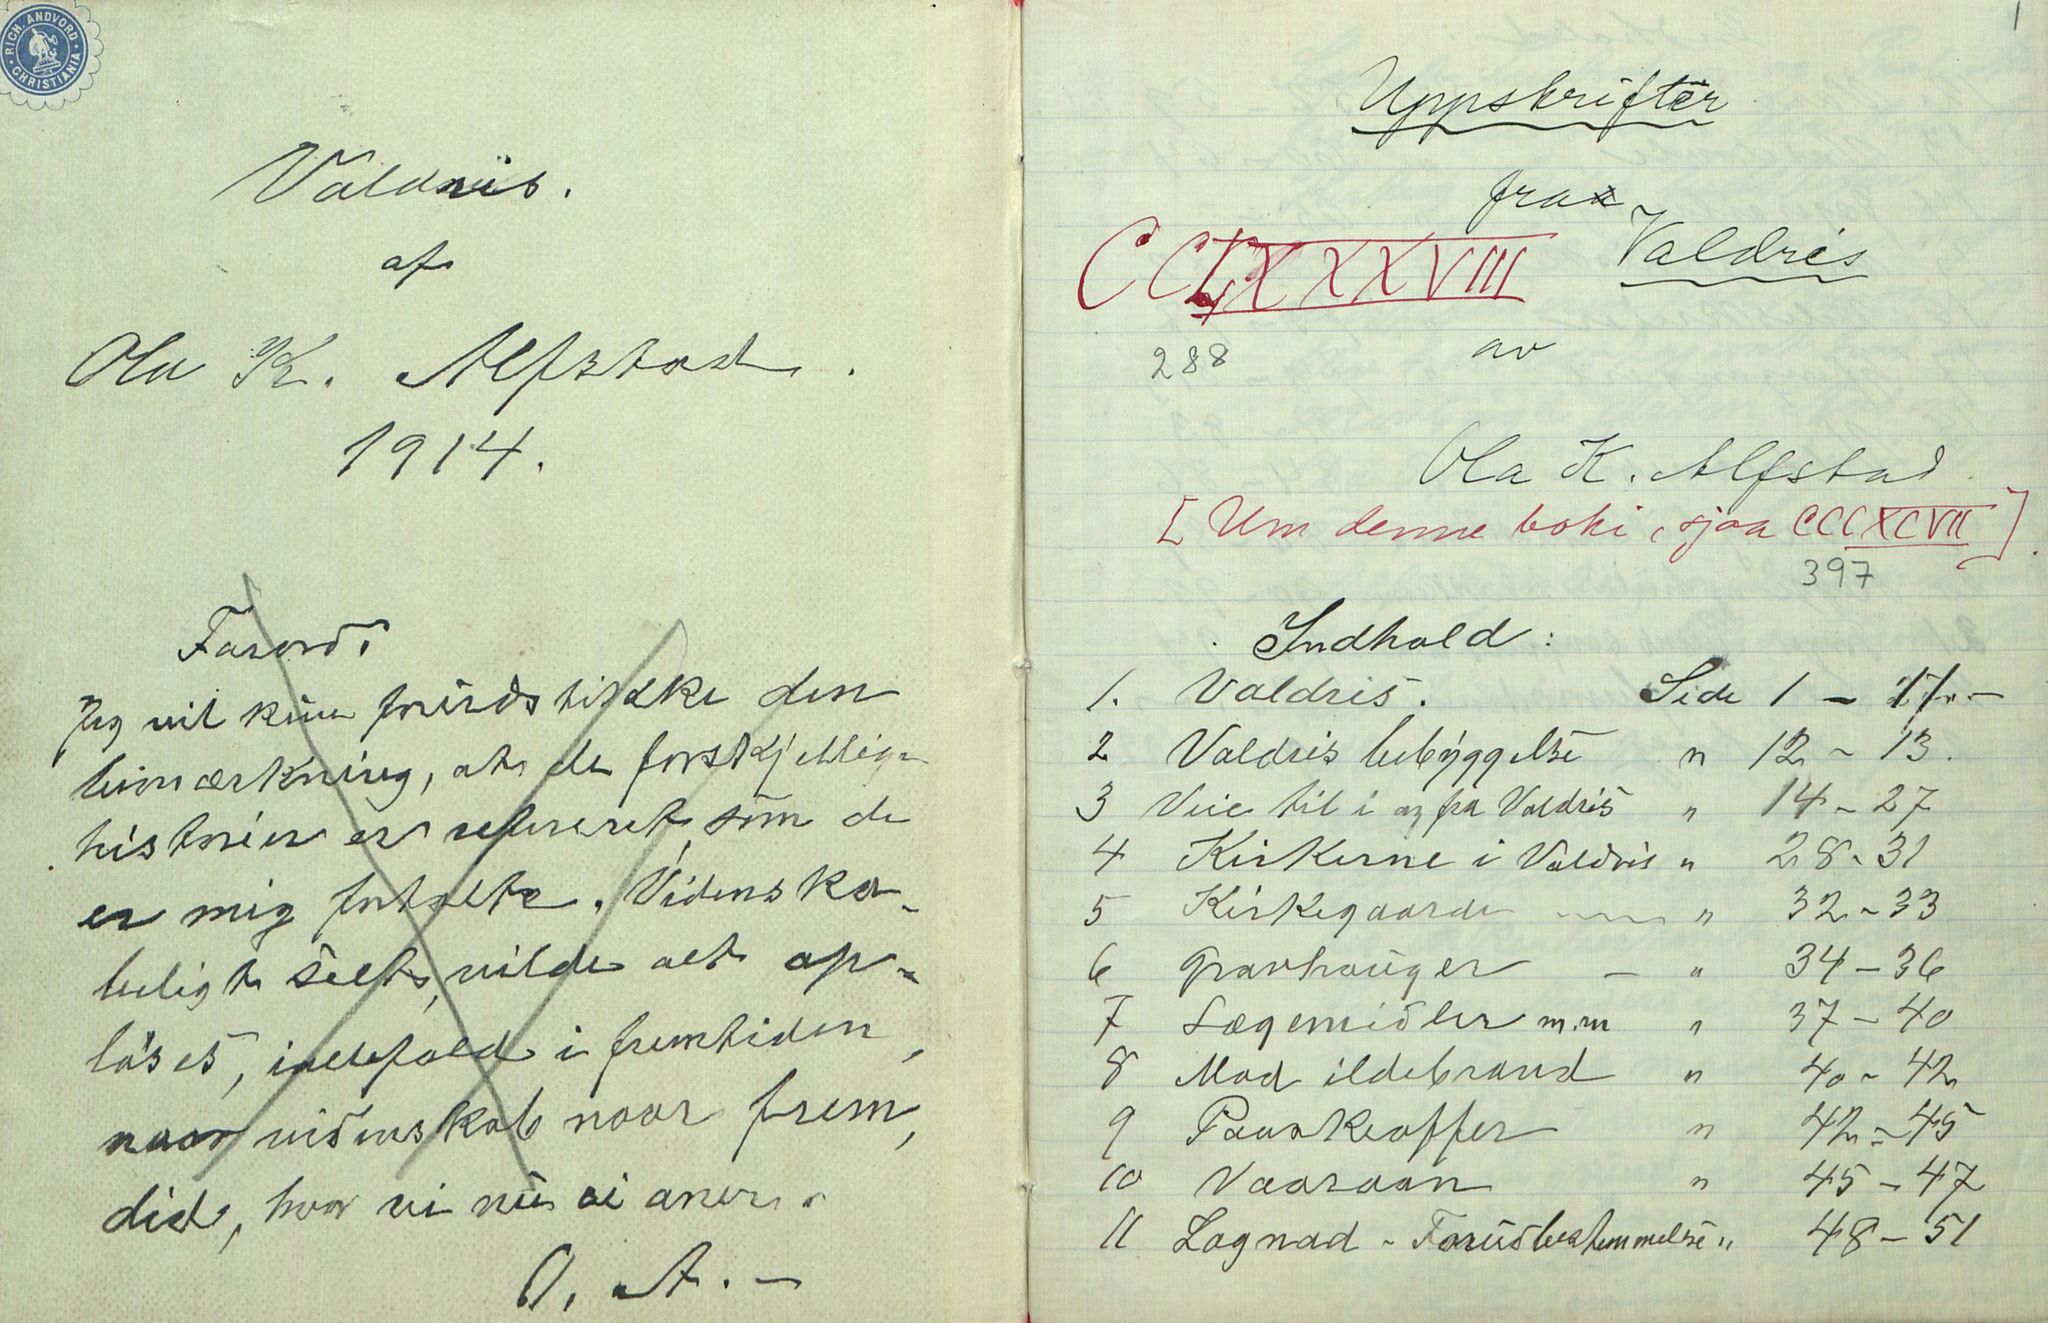 RICH. ANDVORD
CHRISTIANIA
Valdris.
af
Ola K. Alfstad.
1914.
Forord.
Jeg vil kun forudskikke den
bemærkning, at de forskjellige
historier er refereret som de
er mig fortalte. Videnska-
beligt seet, vilde alt op-
løses, ialefald i fremtiden,
naar videnskab naar frem,
did, hvor vi nu ei aner.
O. A. -
1
Uppskrifter
fra
Valdris
CCLXXXVIII
288
av
Ola K. Alfstad.
[Um denne boki, sjaa CCCXCVII].
397
Indhold:
1. Valdris. Side 1 - 11 -
2 Valdris bebyggelse " 12 - 13.
3 Veie til i og fra Valdris " 14 - 27
4 Kirkerne i Valdris " 28 - 31
5 Kirkegaarde " 32 - 33
6 Gravhauger - " 34 - 36
7 Lægemidler m.m " 37 - 40
8 Mod ildebrand " 40 - 42
9 Paaskeoffer " 42 - 45
10 Vaaraan " 45 - 47
11 Lagnad - Forudbestemmelse " 48 - 51